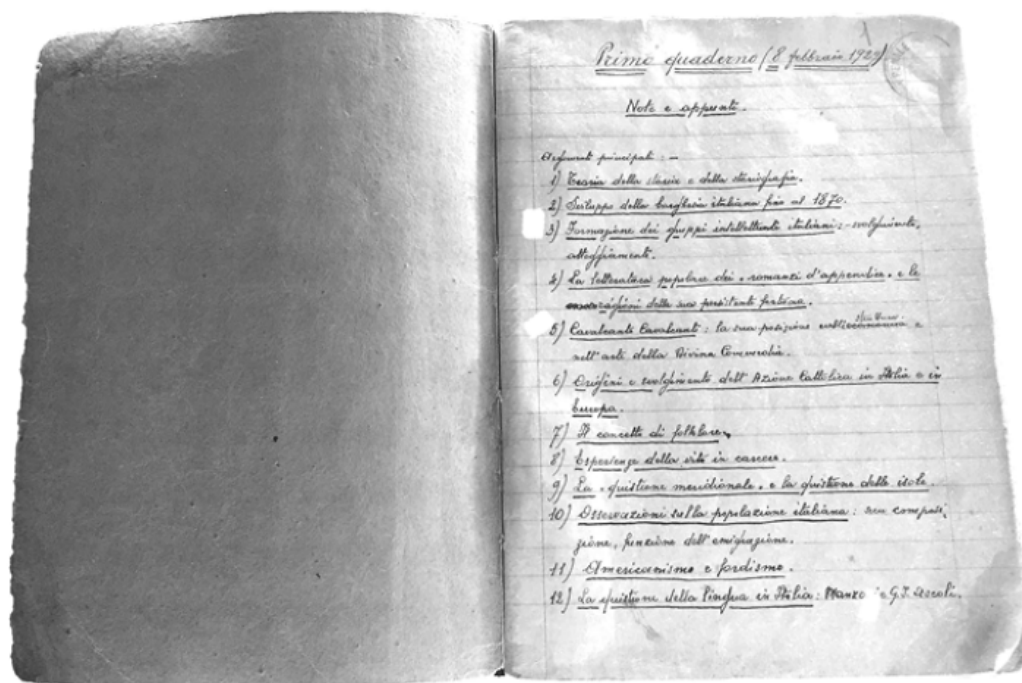 Primo quaderno (8 febbraio 1929)
Note e appunti.
Argomenti principali: —
1) Teoria della storia e della storiografia.
2) Sviluppo della borghesia italiana fino al 1870.
3) Formazione dei gruppi intellettuali italiani: – svolgimento,
atteggiamenti.
4) La letteratura popolare dei "romanzi d'appendice" e le
ragioni della sua persistente fortuna.
5) Cavalcante Cavalcanti: la sua posizione nell'economia e
nell'arte della Divina Commedia.
6) Origini e svolgimento dell'Azione Cattolica in Italia e in
Europa.
7) Il concetto di folklore.
8) Esperienze della vita in carcere.
9) La "quistione meridionale" e la quistione delle isole.
10) Osservazioni sulla popolazione italiana: sua composi,
zione, funzione dell'emigrazione.
11) Americanismo e fordismo.
12) La quistione della lingua in Italia: Manzo e G. I. Ascoli.